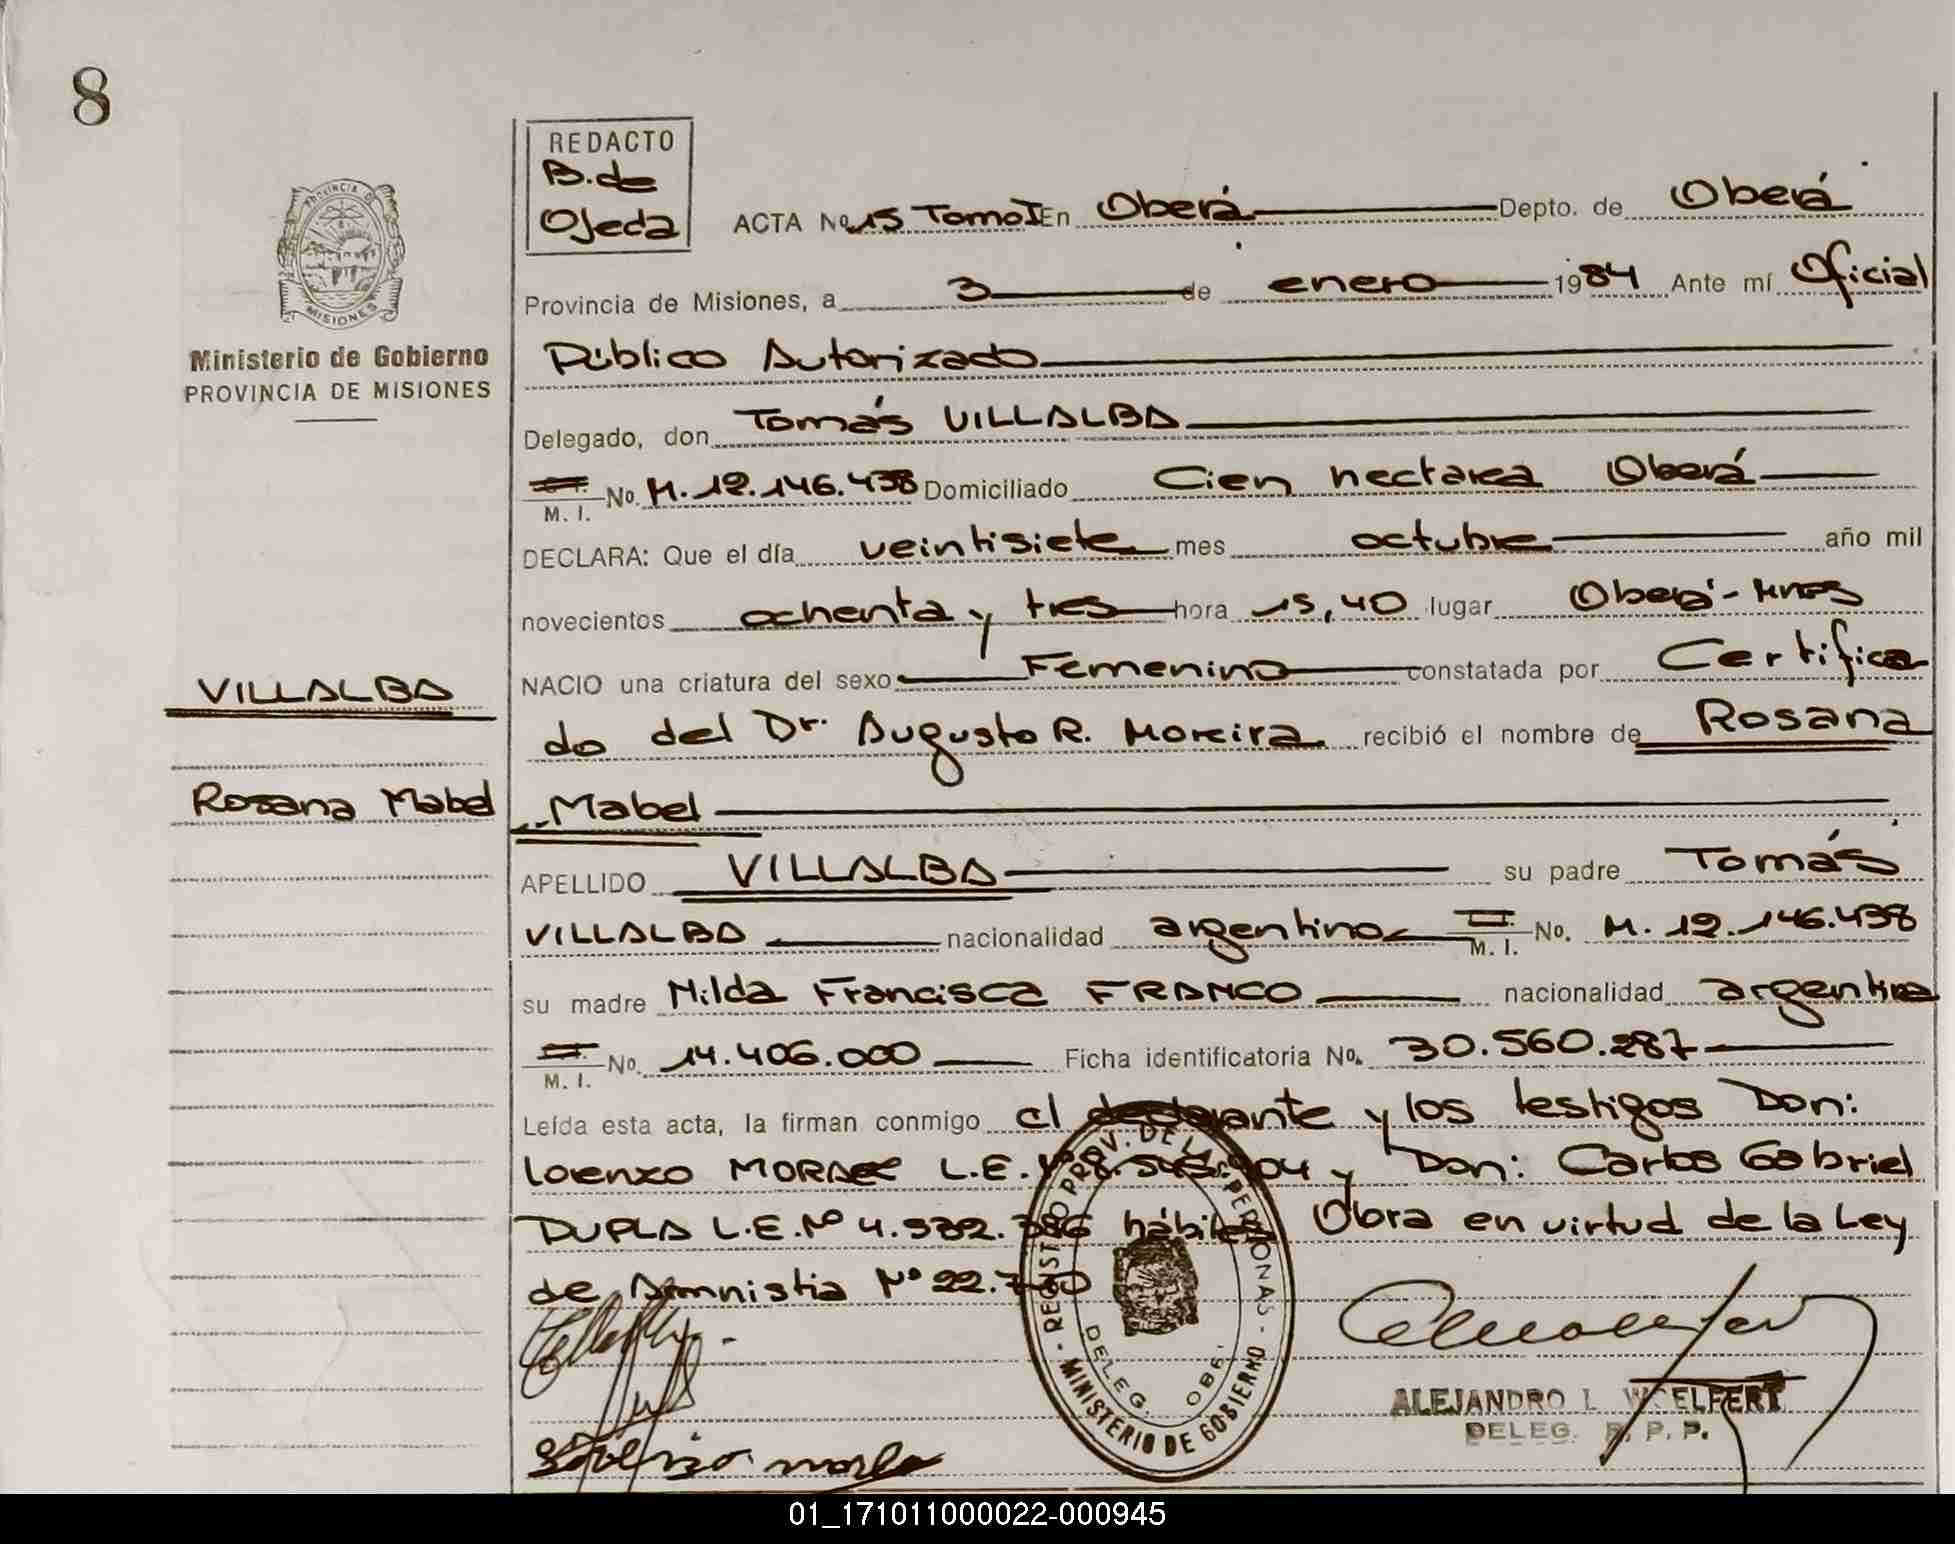 8
REDACTO
B. de
Ojeda
ACTA No 15 Tomo I En Oberá Depto. de Oberá
PROVINCIA DE
MISIONES
Provincia de Misiones, a 3 de enero 1984 Ante mí Oficial
Ministerio de Gobierno
PROVINCIA DE MISIONES
Público Autorizado
Delegado, don Tomás VILLALBA
M. I. No. M. 12.146.438 Domiciliado Cien hectarea Oberá
DECLARA: Que el día veintisiete mes octubre año mil
novecientos ochenta y tres hora 15,40 lugar Oberá - Mnes
NACIO una criatura del sexo Femenino constatada por Certifica
VILLALBA
do del Dr. Augusto R. Moreira recibió el nombre de Rosana
Rosana Mabel
Mabel
APELLIDO VILLALBA su padre Tomás
VILLALBA nacionalidad argentino M. I. No. M. 12.146.438
su madre Nilda Francisca FRANCO nacionalidad argentina
M. I. No. 14.406.000 Ficha identificatoria No. 30.560.287
Leída esta acta, la firman conmigo el declarante y los testigos Don:
Lorenzo L.E. y Don: Carlos Gabriel
DUPLA L.E. Nº hábiles Obra en virtud de la Ley
de Amnistia Nº 22.
REGISTRO PROV. DE LAS PERSONAS - MINISTERIO DE GOBIERNO
DELEG. OBE.
ALEJANDRO L. WOELFERT
DELEG. R. P. P.
01_171011000022-000945